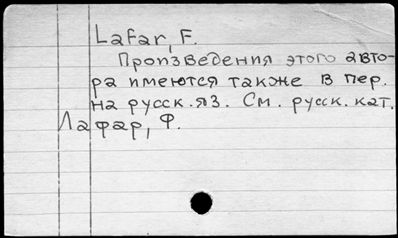 Lafar, F.
Произведения этого авто-
ра имеются также в пер.
на русск. яз. См. русск. кат.
Лафар, Ф.